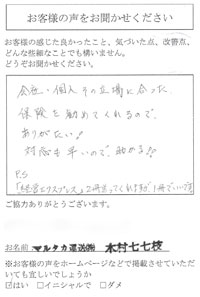 お客様の声をお聞かせください
お客様の感じた良かったこと、気づいた点、改善点、
どんな些細なことでも構いません。
どうぞお聞かせください。
会社、個人 その立場に合った
保険を勧めてくれるので、
ありがたい!
対応も早いので、助かる!!
P.S
「経営エクスプレス」2冊送ってくれますが1冊でいいです
ご協力ありがとうございます。
お名前 マルタカ運送㈱ 木村七七枝
※お客様の声をホームページなどで掲載させていただ
いても宜しいでしょうか
☑はい □イニシャルで □ダメ